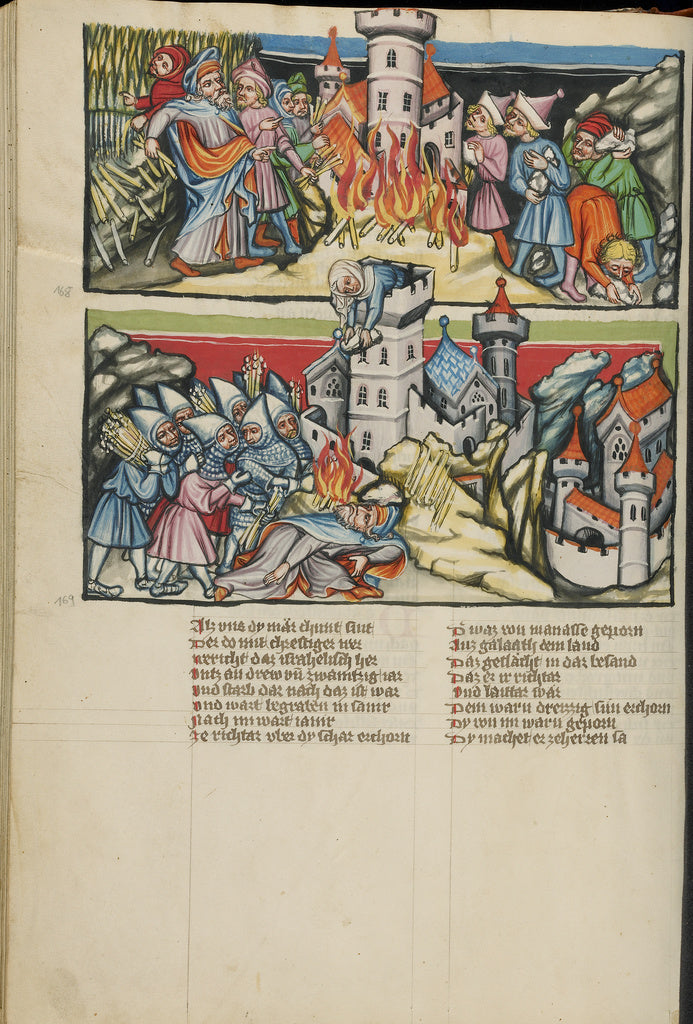 168
169
Alz vns dy mär chunt sint
Der do mit chreftiger wer
Bericht daz israhelisch her
Untz an drew vñ zwaintzig iar
Und starb dar nach daz ist war
Und wart begraben in samir
Nach im wart iayr
Ze richtar vber dy schar erchorn
Er waz von manasse geporn
Auz galaath dem land
Daz geslächt in daz besand
Daz er ir richtar
Und lautar wär
Dem warn dreizzig sün erchorn
Dy von im warn geporn
Dy machet er ze herren sa